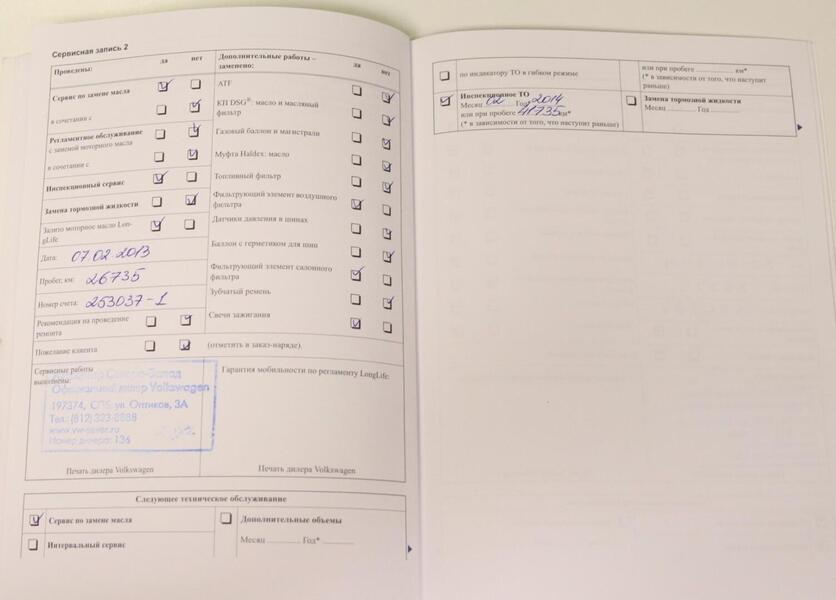 Сервисная запись 2
Проведены:
да
нет
Сервис по замене масла
в сочетании с
Регламентное обслуживание
с заменой моторного масла
в сочетании с
Инспекционный сервис
Замена тормозной жидкости
Залито моторное масло Lon-
gLife
Дата: 07.02.2013
Пробег, км: 26735
Номер счета: 253037-1
Рекомендация на проведение
ремонта
Пожелание клиента
(отметить в заказ-наряде).
Дополнительные работы –
заменено:
да
нет
ATF
КП DSG®: масло и масляный
фильтр
Газовый баллон и магистрали
Муфта Haldex: масло
Топливный фильтр
Фильтрующий элемент воздушного
фильтра
Датчики давления в шинах
Баллон с герметиком для шин
Фильтрующий элемент салонного
фильтра
Зубчатый ремень
Свечи зажигания
Сервисные работы
выполнены:
Северо-Запад
Официальный дилер Volkswagen
197374, СПб, ул. Оптиков, 3А
Тел.: (812) 323-8888
Номер дилера: 136
Печать дилера Volkswagen
Гарантия мобильности по регламенту LongLife:
Печать дилера Volkswagen
Следующее техническое обслуживание
Сервис по замене масла
Интервальный сервис
Дополнительные объемы
Месяц ............ Год* ............
по индикатору ТО в гибком режиме
или при пробеге ............ км*
(* в зависимости от того, что наступит
раньше)
Инспекционное ТО
Месяц 02 Год* 2014
или при пробеге 41735 км*
(* в зависимости от того, что наступит раньше)
Замена тормозной жидкости
Месяц ............ Год ............